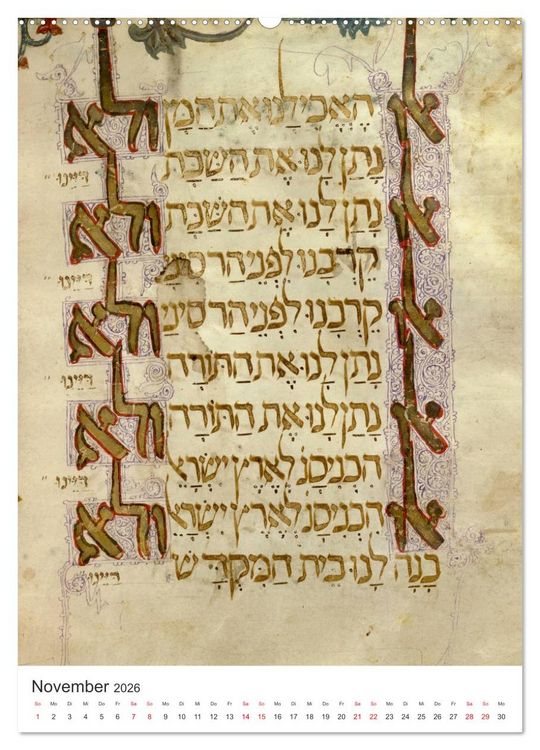 אל הֶאֱכִילָנוּ אֶת הַמָּן ולא
נָתַן לָנוּ אֶת הַשַּׁבָּת דַּיֵּינוּ
אל נָתַן לָנוּ אֶת הַשַּׁבָּת ולא
קֵרְבָנוּ לִפְנֵי הַר סִינַי דַּיֵּינוּ
אל קֵרְבָנוּ לִפְנֵי הַר סִינַי ולא
נָתַן לָנוּ אֶת הַתּוֹרָה דַּיֵּינוּ
אל נָתַן לָנוּ אֶת הַתּוֹרָה ולא
הִכְנִיסָנוּ לְאֶרֶץ יִשְׂרָא דַּיֵּינוּ
אל הִכְנִיסָנוּ לְאֶרֶץ יִשְׂרָא ולא
בָּנָה לָנוּ בֵּית הַמִּקְדָּשׁ דַּיֵּינוּ
November 2026
So Mo Di Mi Do Fr Sa So Mo Di Mi Do Fr Sa So Mo Di Mi Do Fr Sa So Mo Di Mi Do Fr Sa So Mo
1 2 3 4 5 6 7 8 9 10 11 12 13 14 15 16 17 18 19 20 21 22 23 24 25 26 27 28 29 30